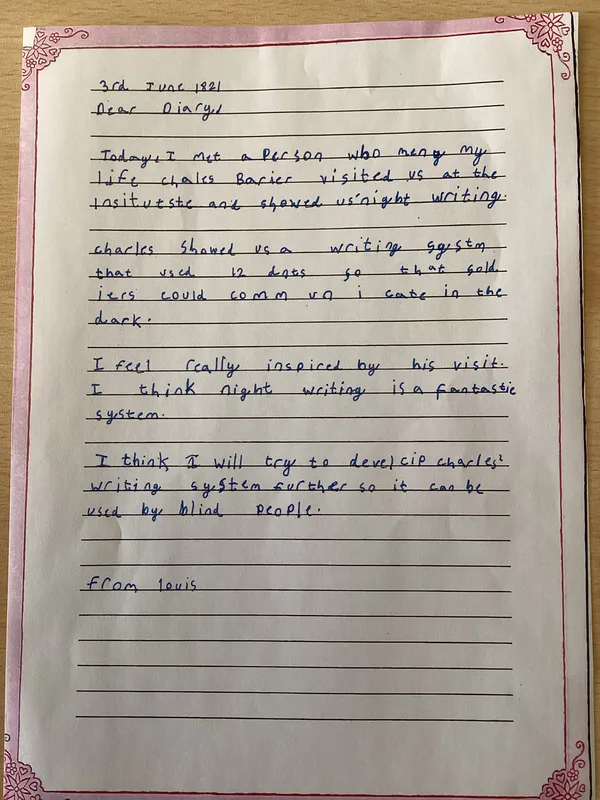 3rd June 1821
Dear Diary,
Today, I met a Person who meny my
life chales Barier visited us at the
Insitutste and showed us'night writing.
charles showed us a writing systm
that used 12 dots so that sold
iers could comm un i cate in the
dark.
I feel really inspired by his visit.
I think night writing is a fantastic
system.
I think I will try to develcip charles'
writing system further so it can be
used by blind People.
from louis